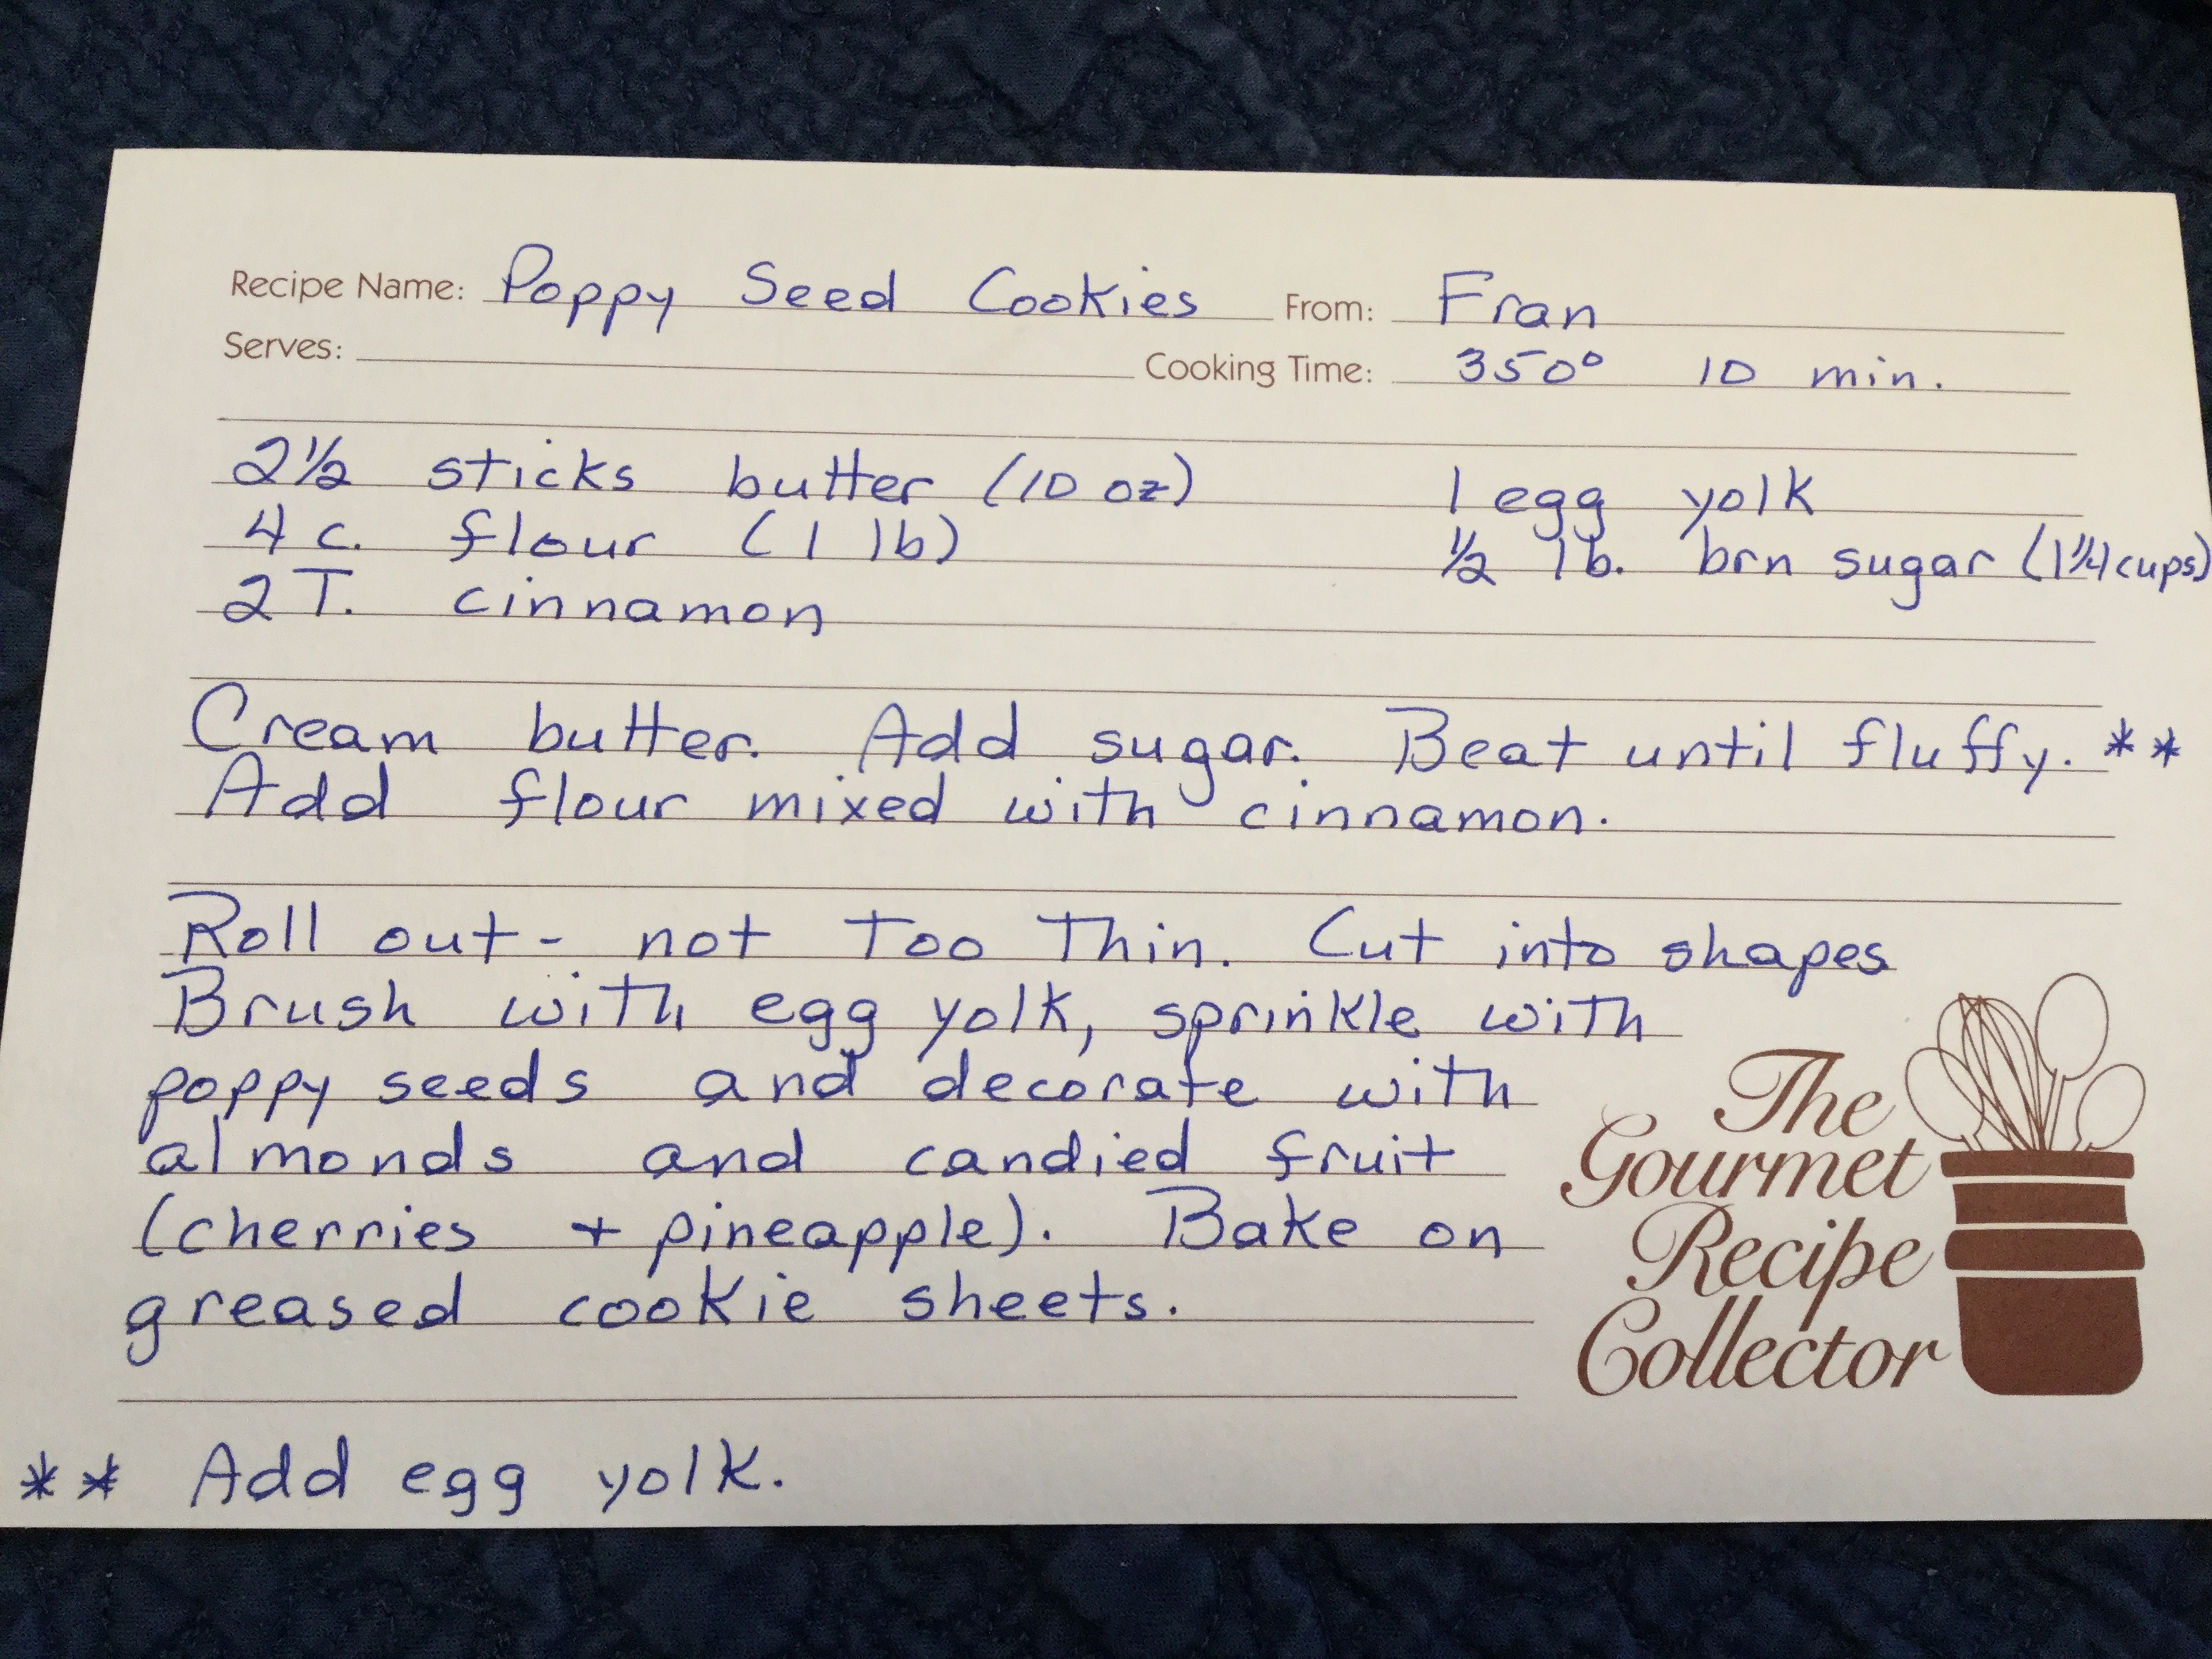 Recipe Name: Poppy Seed Cookies From: Fran
Serves: Cooking Time: 350° 10 min.
2½ sticks butter (10 oz) 1 egg yolk
4 c. flour (1 lb) ½ lb. brn sugar (1¼ cups)
2 T. cinnamon
Cream butter. Add sugar. Beat until fluffy. **
Add flour mixed with cinnamon.
Roll out - not too thin. Cut into shapes
Brush with egg yolk, sprinkle with
poppy seeds and decorate with
almonds and candied fruit
(cherries + pineapple). Bake on
greased cookie sheets.
The
Gourmet
Recipe
Collector
** Add egg yolk.